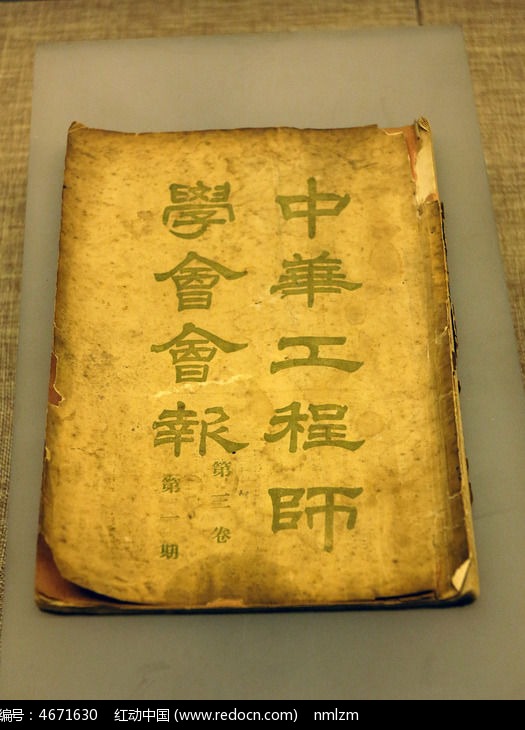 中華工程師
學會會報
第三卷
第一期
编号：4671630 红动中国 (www.redocn.com) nmlzm